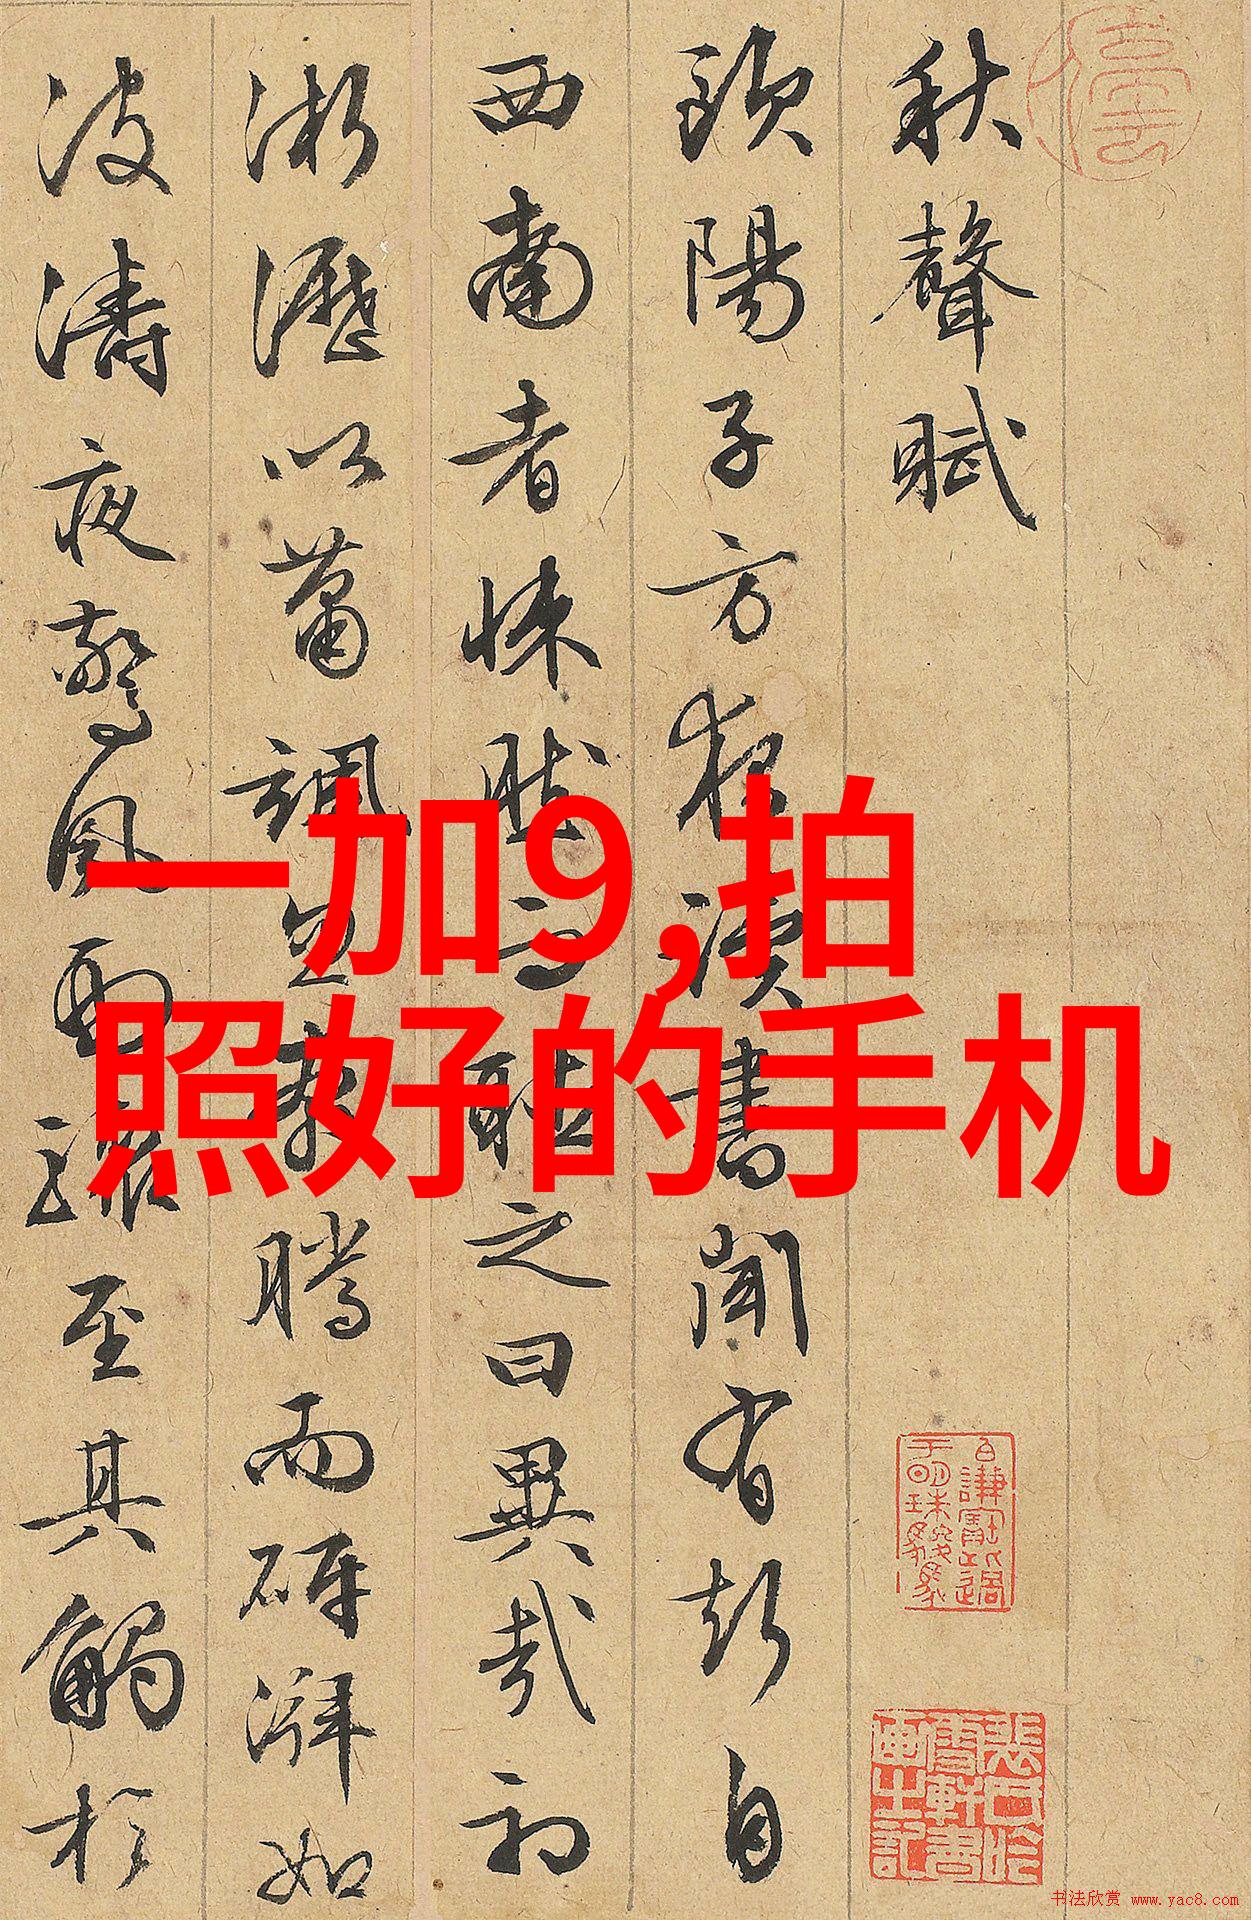 秋聲賦
歐陽子方夜讀書聞有聲自
西南者悚然而聽之曰異哉初
淅瀝以蕭颯忽奔騰而砰湃如
波濤夜驚風雨驟至其觸於
一加9,拍
照好的手机
书法欣赏 www.yac8.com